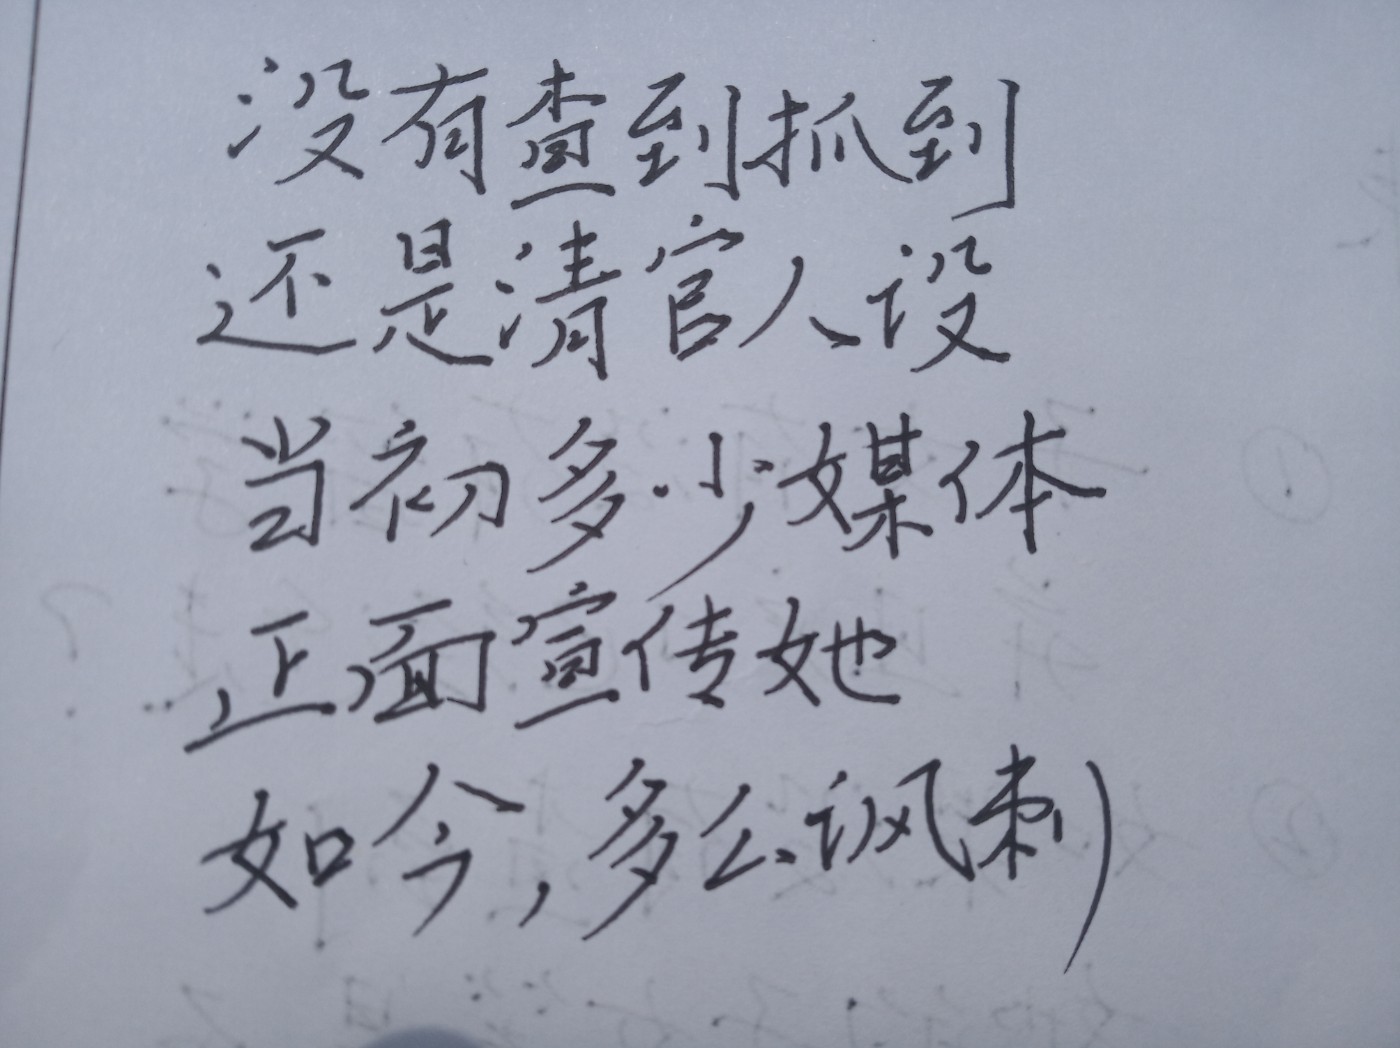 没有查到抓到
还是清官人设
当初多少媒体
正面宣传她
如今,多么讽刺